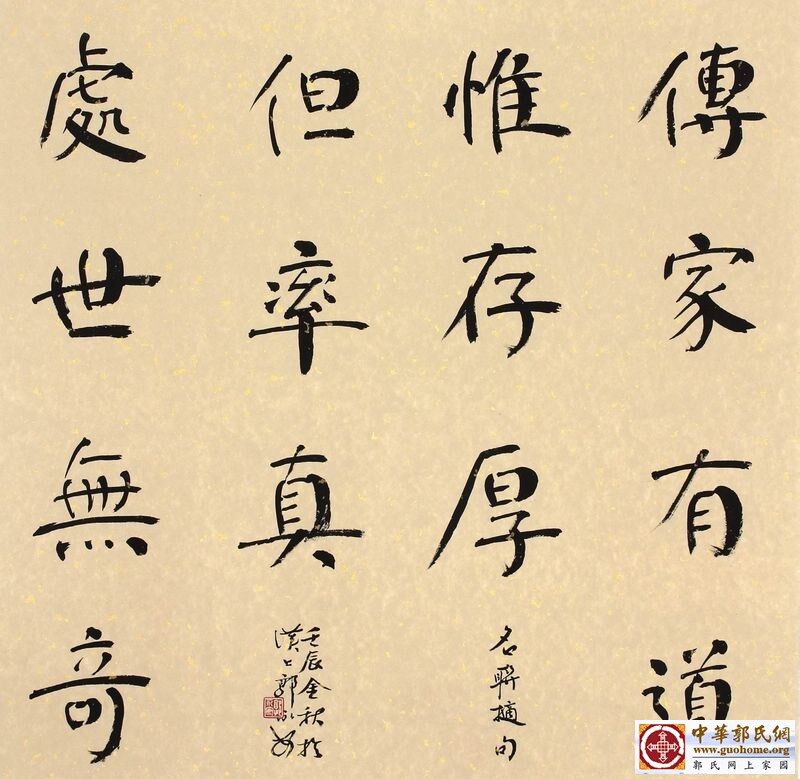 傳家有道
惟存厚
名聯摘句
處世無奇
但率真
壬辰金秋於
漢上郭
中華郭氏網
www.guohome.org
郭氏网上家园